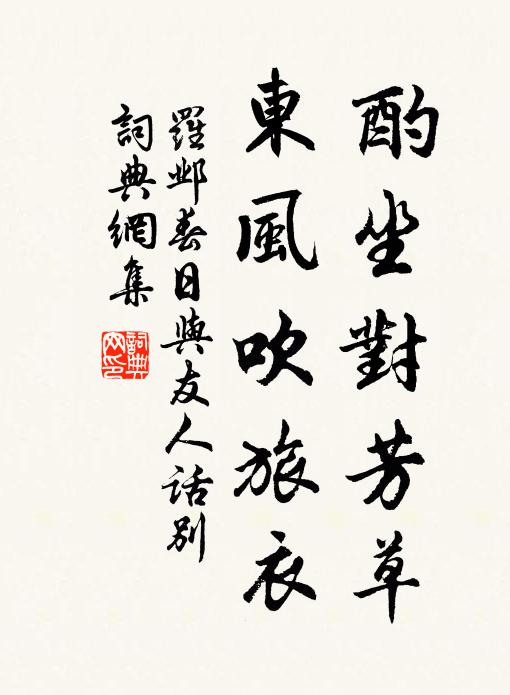 酌坐對芳草
東風吹旅衣
羅鄴春日與友人話別
詞典網集
詞典網印